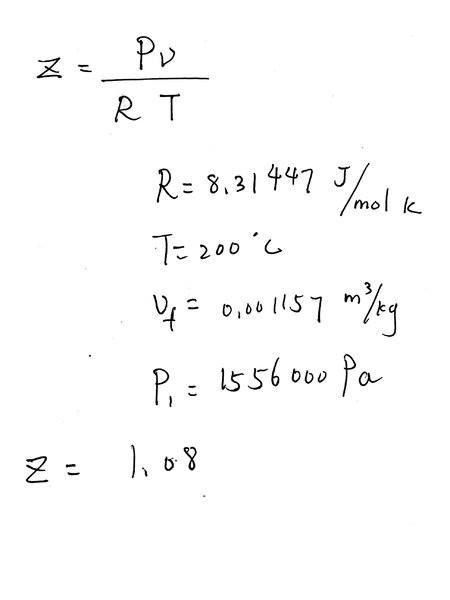 Z = Pν / R T
R = 8.31447 J/mol K
T = 200 °C
υf = 0.001157 m³/kg
P₁ = 1556000 Pa
Z = 1.08